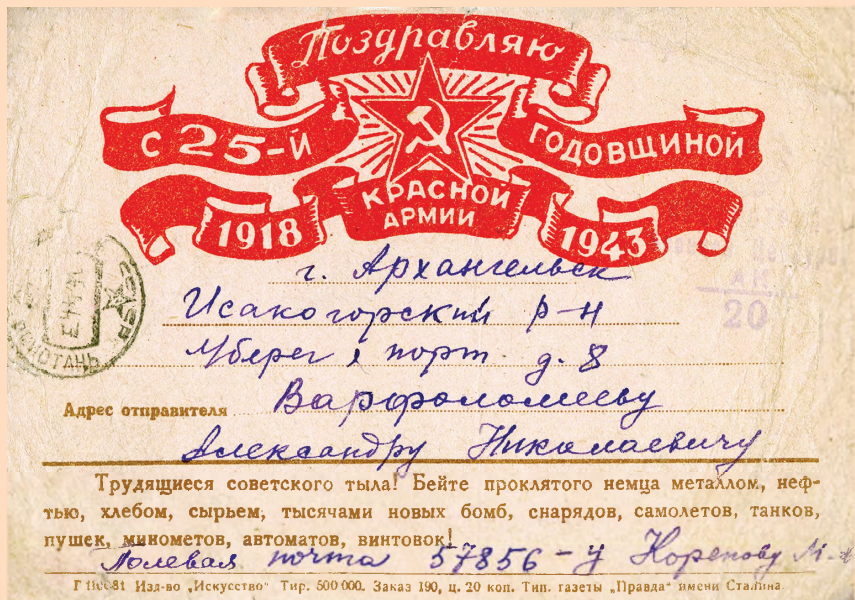 Поздравляю
с 25-й годовщиной
КРАСНОЙ
АРМИИ
1918 1943
г. Архангельск
Исакогорский р-н
порт. д. 8
Адрес отправителя Варфоломееву
Александру Николаевичу
Трудящиеся советского тыла! Бейте проклятого немца металлом, неф-
тью, хлебом, сырьем, тысячами новых бомб, снарядов, самолетов, танков,
пушек, минометов, автоматов, винтовок!
Полевая почта 57856-у
Изд-во „Искусство" Тир. 500 000. Заказ 190, ц. 20 коп. Тип. газеты „Правда" имени Сталина
20